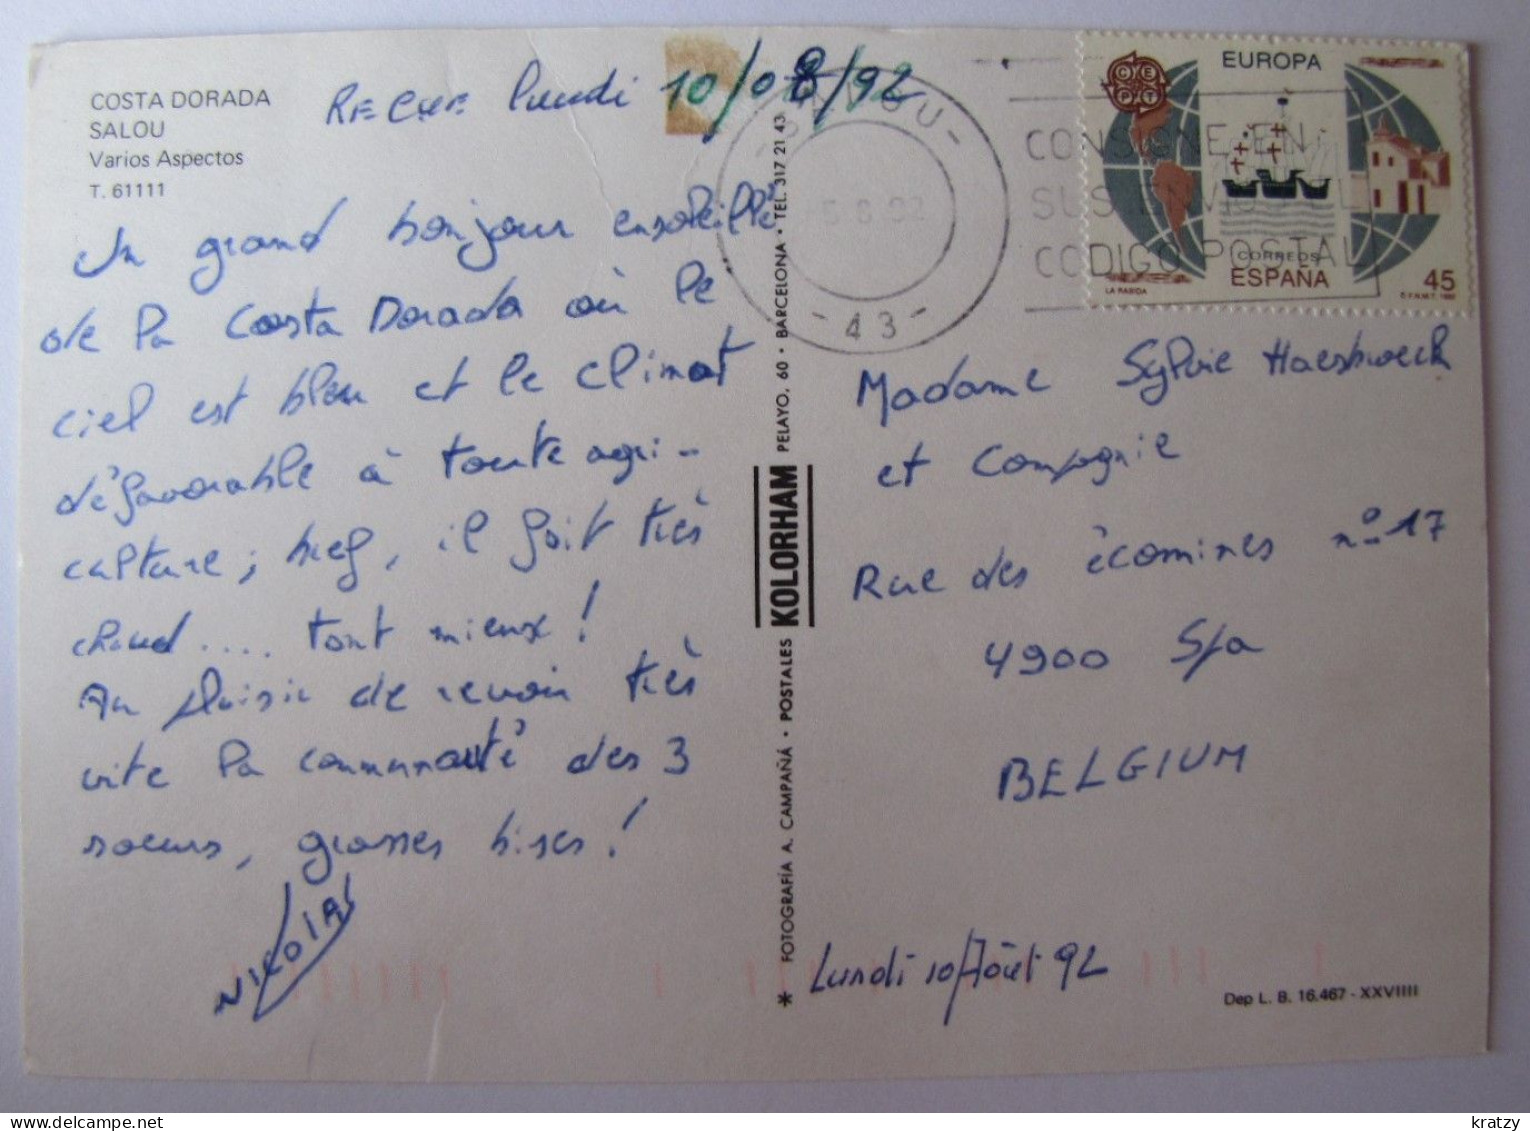 COSTA DORADA
SALOU
Varios Aspectos
T. 61111
RECUE lundi 10/08/92
Un grand bonjour ensoleillé
de la Costa Dorada où le
ciel est bleu et le climat
défavorable à toute agri-
culture ; bref, il fait très
chaud .... tant mieux !
Au plaisir de revoir très
vite la communauté des 3
soeurs, grosses bises !
NICOLAS
* FOTOGRAFÍA A. CAMPAÑÁ • POSTALES KOLORHAM PELAYO, 60 • BARCELONA • TEL. 317 21 43
SALOU
-5 8 92
- 43 -
CONSIGNE EN
SUS ENVIOS EL
CODIGO POSTAL
CEPT
EUROPA
CORREOS
ESPAÑA
45
LA RABIDA
F.N.M.T. 1992
Madame Sylvie
et Compagnie
Rue des écomines n° 17
4900 Spa
BELGIUM
Lundi 10/Août 92
Dep L. B. 16.467 - XXVIIII
kratzy